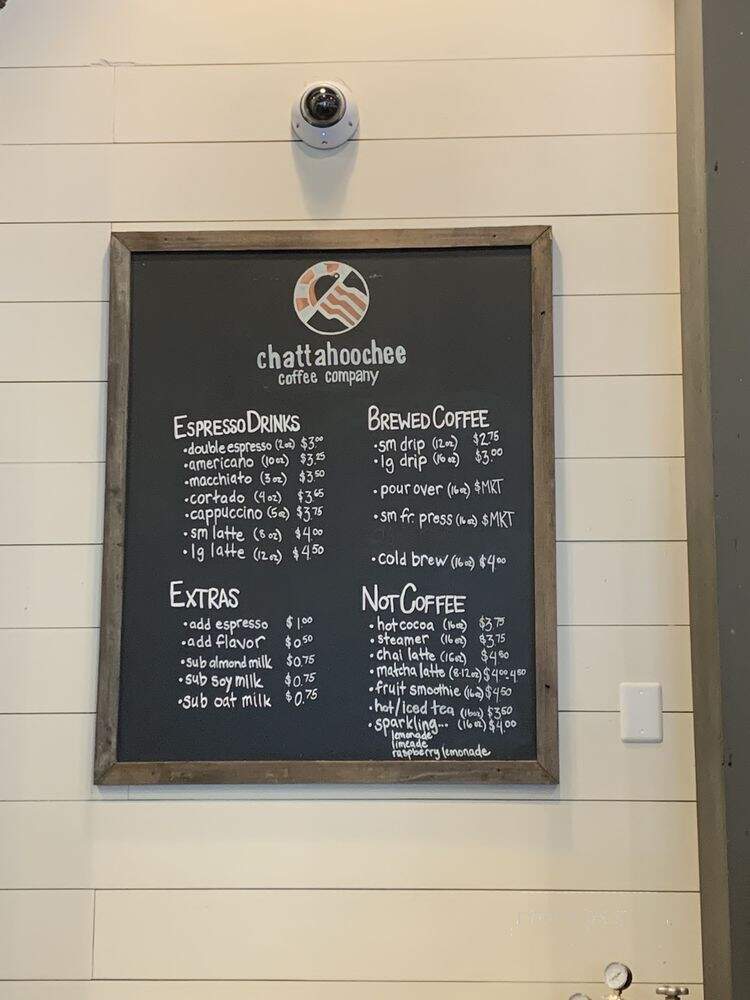 chattahoochee
coffee company
ESPRESSO DRINKS
• double espresso (2oz) $3.00
• americano (10oz) $3.25
• macchiato (3oz) $3.50
• cortado (4oz) $3.65
• cappuccino (5oz) $3.75
• sm latte (8oz) $4.00
• lg latte (12oz) $4.50
EXTRAS
• add espresso $1.00
• add flavor $0.50
• sub almond milk $0.75
• sub soy milk $0.75
• sub oat milk $0.75
BREWED COFFEE
• sm drip (12oz) $2.75
• lg drip (16oz) $3.00
• pour over (16oz) $MKT
• sm fr. press (16oz) $MKT
• cold brew (16oz) $4.00
NOT COFFEE
• hot cocoa (16oz) $3.75
• steamer (16oz) $3.75
• chai latte (16oz) $4.50
• matcha latte (8-12oz) $4.00-4.50
• fruit smoothie (16oz) $4.50
• hot/iced tea (16oz) $3.50
• sparkling... (16oz) $4.00
lemonade
limeade
raspberry lemonade